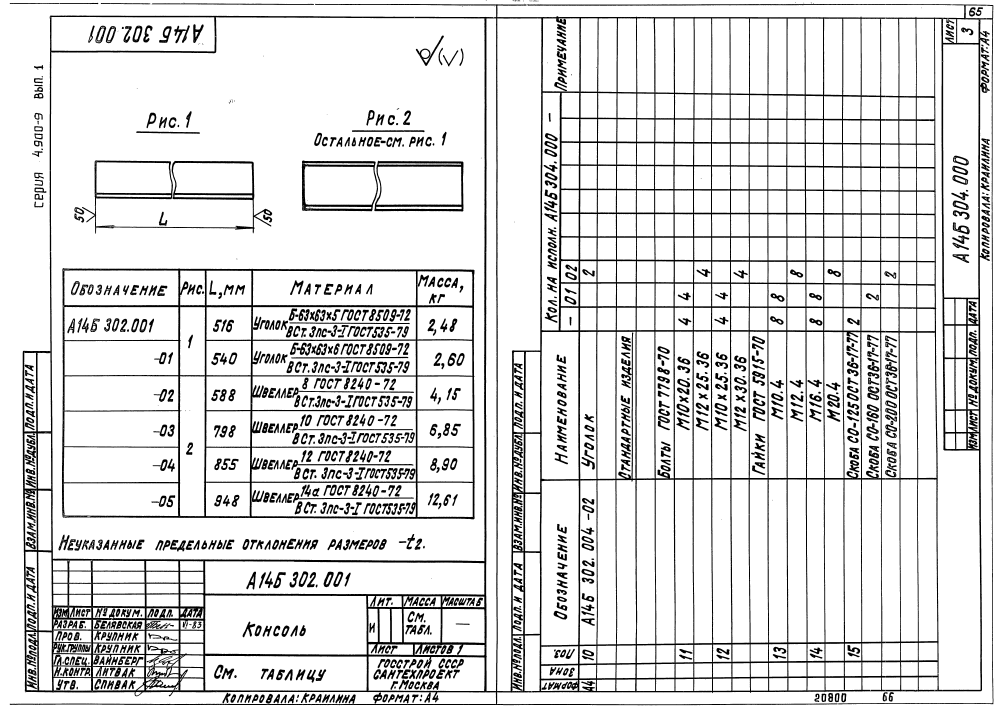 65
А14Б 302.001
Серия 4.900-9 вып. 1
(√)
Рис. 1
Рис. 2
Остальное-см. рис. 1
50
L
50
Обозначение Рис. L, мм Материал Масса, кг
А14Б 302.001 1 516 Уголок Б-63х63х5 ГОСТ 8509-72 / В Ст. 3пс-3-I ГОСТ 535-79 2,48
-01 540 Уголок Б-63х63х6 ГОСТ 8509-72 / В Ст. 3пс-3-I ГОСТ 535-79 2,60
-02 2 588 Швеллер 8 ГОСТ 8240-72 / В Ст. 3пс-3-I ГОСТ 535-79 4,15
-03 798 Швеллер 10 ГОСТ 8240-72 / В Ст. 3пс-3-I ГОСТ 535-79 6,85
-04 855 Швеллер 12 ГОСТ 8240-72 / В Ст. 3пс-3-I ГОСТ 535-79 8,90
-05 948 Швеллер 14а ГОСТ 8240-72 / В Ст. 3пс-3-I ГОСТ 535-79 12,61
Неуказанные предельные отклонения размеров -t2.
Инв. № подл. Подп. и дата Взам. инв. № Инв. № дубл. Подп. и дата
А14Б 302.001
Изм Лист № докум. Подп. Дата
Разраб. Белявская VI-83
Пров. Крупник
Рук. группы Крупник
Гл. спец. Вайнберг
Н. контр. Литвак
Утв. Спивак
Консоль
См. таблицу
Лит. Масса Масштаб
И См. табл. —
Лист Листов 1
Госстрой СССР
Сантехпроект
г. Москва
Копировала: Краилина Формат: А4
Формат Зона Поз. Обозначение Наименование Кол. на исполн. А14Б 304.000 — Примечание
— 01 02
А4 10 А14Б 302. 004 -02 Уголок 2
Стандартные изделия
Болты ГОСТ 7798-70
11 М10 х 20.36 4 4
М12 х 25.36 4
12 М12 х 25.36 4 4
М12 х 30.36 4
Гайки ГОСТ 5915-70
13 М10.4 8 8
М12.4 8
14 М16.4 8 8
М20.4 8
15 Скоба СО-125 ОСТ 36-17-77 2
Скоба СО-160 ОСТ 36-17-77 2
Скоба СО-200 ОСТ 36-17-77 2
Инв. № подл. Подп. и дата Взам. инв. № Инв. № дубл. Подп. и дата
Изм Лист № докум. Подп. Дата
А14Б 304.000
Лист
3
Копировала: Краилина Формат: А4
20800 66